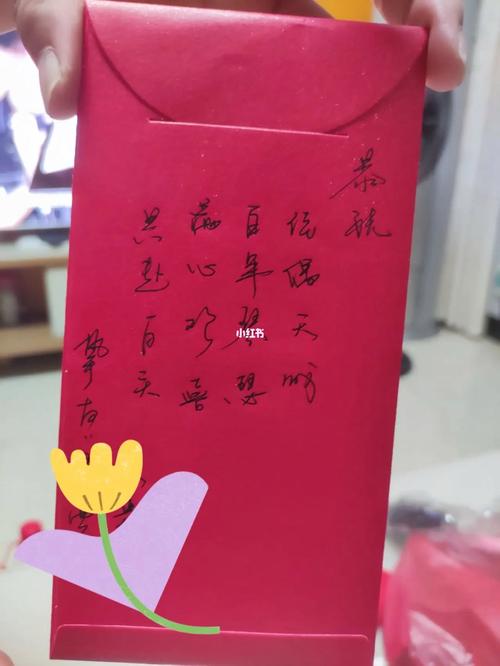 恭祝
佳偶天成
百年琴瑟
满心欢喜
共赴白头
挚友
小红书